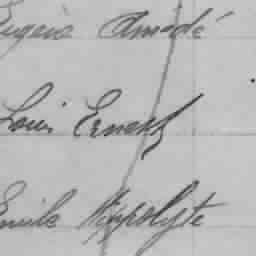 Eugène Amedé
Louis Ernest
Emile Hippolyte